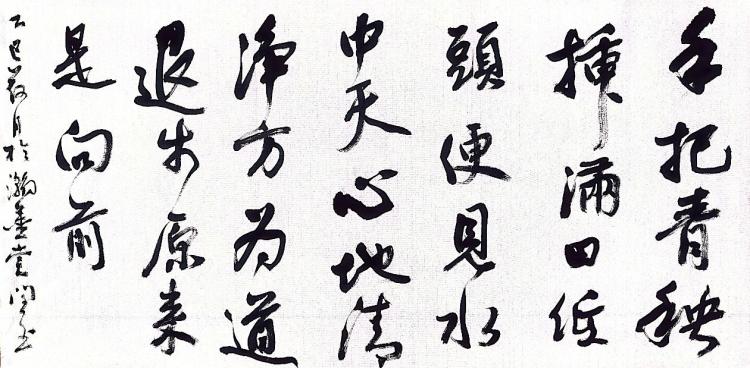 手把青秧
插滿田低
頭便見水
中天心地清
淨方為道
退步原来
是向前
乙巳月於瀚墨堂